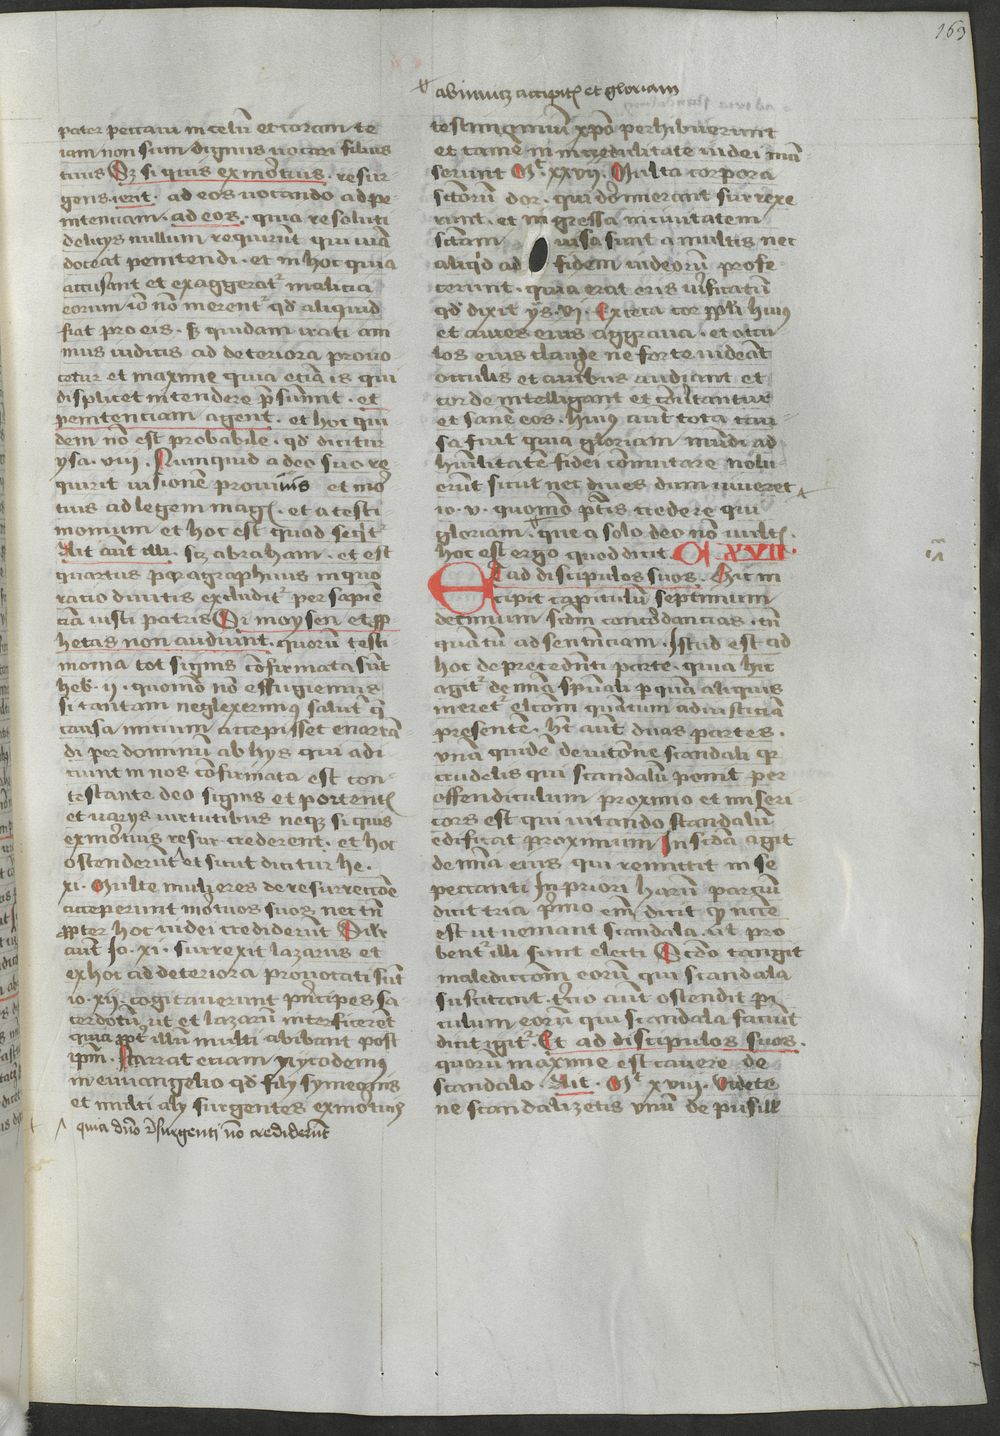 169
ab inuicē accipitis et gloriam
pater peccaui in celum et coram te
iam non sum dignus uocari filius
tuus Sz si quis ex mortuis · resur-
gens · ierit · ad eos uocando ad pe-
nitenciam · ad eos · quia resoluti
delicijs nullum requirūt qui uiā
doceat penitendi · et in hoc quia
accusant et exaggerat᷑ malicia
eorum iō nō merent᷑ qd aliquid
fiat pro eis · sz quidam irati am
mus iudicis ad deteriora prouo
cetur et maxime quia eciā is qui
displicet intendere p̄sumit · et
penitenciam agent · et hoc qui
dem nō est probabile · qd dicitur
ysa · viii · Numquid a deo suo re-
quirit uisionē pro uiuis et mor
tuis ad legem magis · et a testi
monium et hoc est quod seqit᷑
Ait aut illi · sz abraham · et est
quartus paragraphus in quo
racio diuitis excludit᷑ per sapiē
ciā iusti patris Si moysen et pp
hetas non audiunt · quorū testi
monia tot signis cōfirmata sūt
heb · ii · quomō nō effugiemus
si tantam neglexerimus salutē q̄
causa inicium accepisset enarrā
di per dominū ab hys qui audi
runt in nos cōfirmata est con-
testante deo signis et portentis
et uarys uirtutibus neqz si quis
ex mortuis resur · crederent · et hoc
ostenderūt et sicut dicitur he ·
xi · Multe mulieres de resurrectōe
acceperunt mortuos suos nec tn̄
propter hoc iudei crediderūt Silr
aut Jo · xi · surrexit lazarus et
ex hoc ad deteriora prouocati sūt
io · xij · cogitauerunt principes sa
cerdotū ut et lazarū interficerēt
quia ppt᷑ illū multi abibant post
ipm · Narrat eciam nycodemus
in euuangelio qd filij symeonis
et multi alij surgentes ex mortuis
quia dn̄o resurgenti nō crediderūt
testimoniū xp̄o perhibuerunt
et tamē in incredulitate iudei man
serunt M͂ · xxvii · Multa corpora
sc̄torū dor · qui dormierant surrexe
runt · et ingressa in ciuitatem
sc̄tam uisa sunt a multis nec
aliqd ad fidem iudeorū profe
cerunt · quia erat eris uificatū
qd dixit ys · vi · Exceca cor ppli huiꝰ
et aures eius aggraua · et occu
los eius claude ne forte uideāt
occulis et auribus audiant et
corde intelligant et cōuertantur
et sanē eos · huiꝰ aut tota cau-
sa fuit quia gloriam mūdi ad
humilitatē fidei cōmutare nolu-
erūt sicut nec diues dum uiueret
io · v · quomō potestis credere qui
gloriam · que a solo deo nō uultis
hoc est ergo quod dicit · C XVII ·
Et ad discipulos suos · Hic in
cipit capitulū septimum
decimum scdm concordancias · tn̄
quātū ad sentenciam · Istud est ad
hoc de precedenti parte · quia hic
agit᷑ de mīa spūali p quā aliquis
meret᷑ elcōm quātum ad iusticiā
presentē · h̄t aut duas partes ·
vnā quidē de uitacōne scandali qr
crudelis qui scandalū ponit per
offendiculum proximo et miseri
cors est qui uitando scandalū
edificat proximum In scda agit
de mīa eius qui remittit in se
peccanti In priori harū parciū
dicit tria p̄mo em̄ dicit qz necē
est ut ueniant scandala · ut pro
bent᷑ illi sunt electi Scdo tangit
malediccōnem eorū qui scandala
suscitant · tercio aut ostendit pi
culum eorū qui scandala faciūt
dicit igit᷑ · Et ad discipulos suos ·
quorū maxime est cauere de
scandalo · Ait · M͂ xviii · Videte
ne scandalizetis vnū de pusill